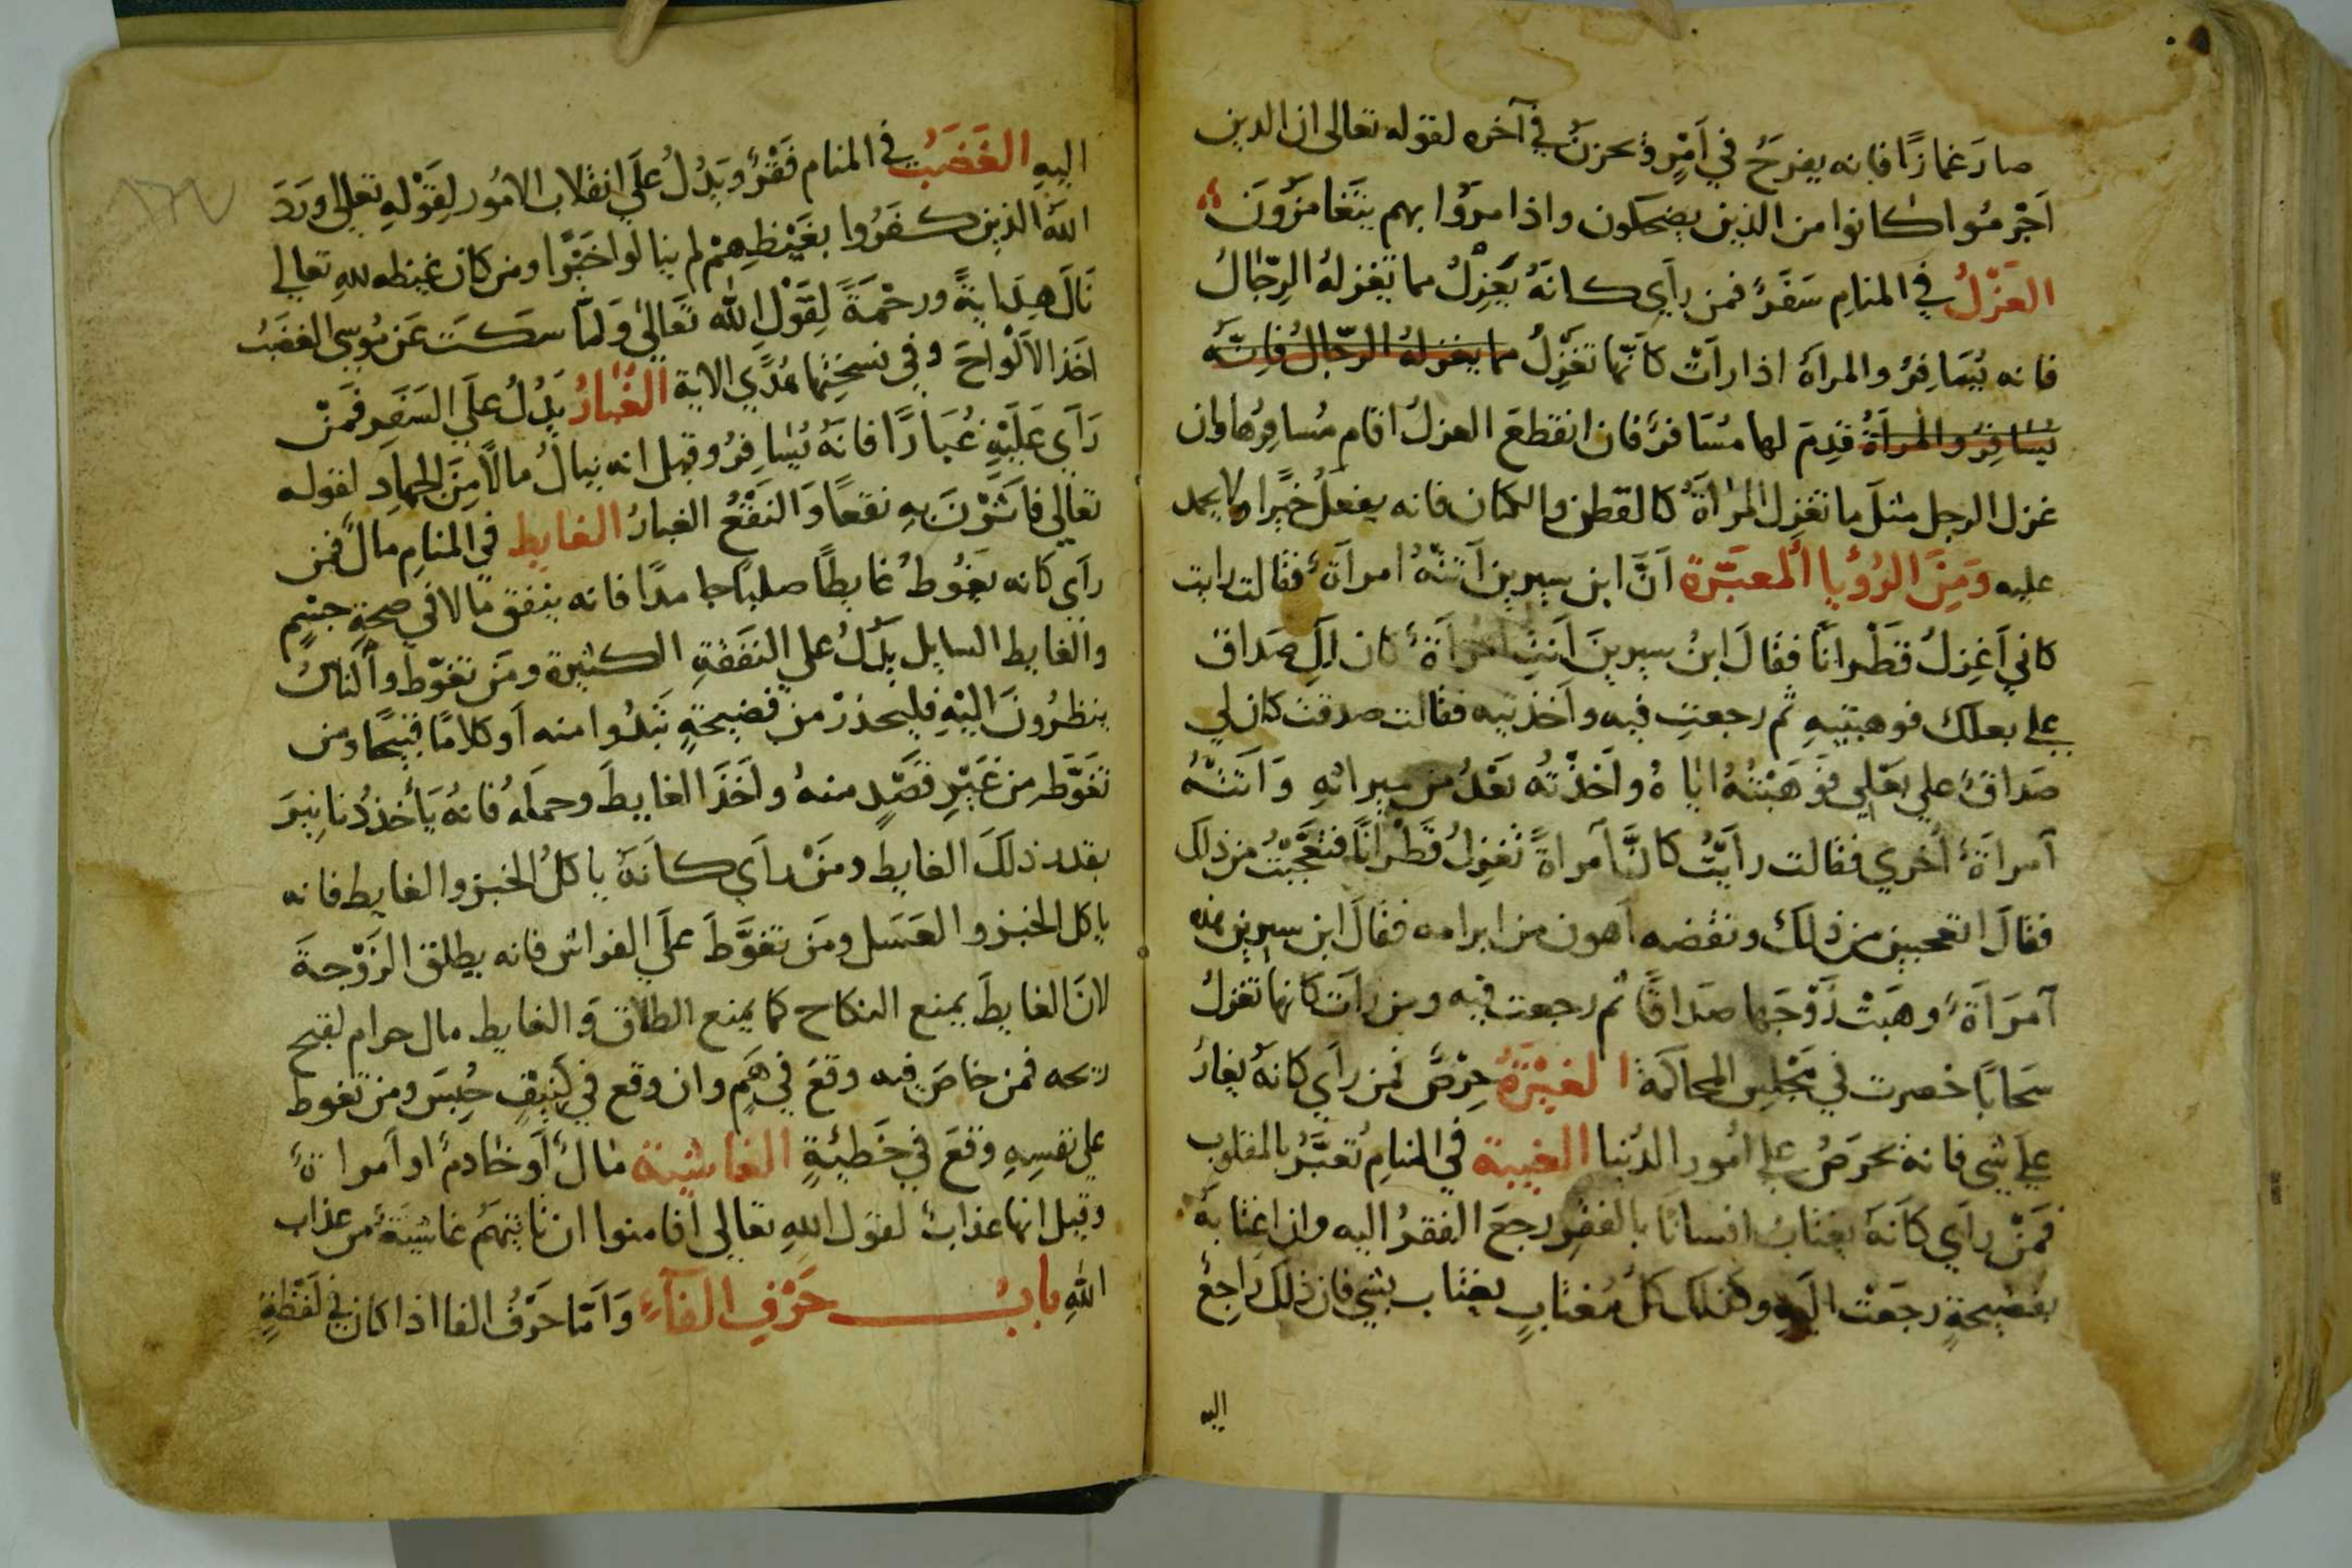 صارَ غمازًا فانه يفرَحُ في اَمْرٍ وَ يحزنُ في آخره لقوله تعالى ان الدين
اَجْرمُوا كانوا من الذين يضحكون واذا مرّوا بهم يتَغامَزُونَ
العَزْلُ في المنامِ سَفَرٌ فمن رأى كانهُ يَغزِلُ مما تغزلهُ الرِجّالُ
فانه يُسَافِرُ والمرأة اذا راَتْ كاَنّها تغَزِلُ مما يغزلهُ الرجّالُ فاِنّه
يُسَافِرُ والمرأةُ قدِمَ لها مسَافرٌ فان انقطعَ الغزلُ اقام مُسافِرُها وان
غزل الرجل مثلَ ما تغزِل المرأةُ كالقطن والكتان فانه يفعلُ خيرًا ولا يحمد
عليه وَمِنَ الرُؤْيا المعبّرة اَنَّ ابن سيرين اَتتْهُ امرأةٌ فقالت رايت
كاني اَغزِلُ قطْرانًا فقالَ ابنُ سيرينَ اَنتِ امْرأةٌ كان لكِ صَداق
على بعلك فوهبتيهِ ثم رجعتِ فيه واَخذتيه فقالت صدقت كان لي
صَداقٌ على بعَلي فَوَهَبْتُهُ اياهُ واَخذْتُه بَعْدُ من ميراثهِ وَاَتتْهُ
آمرأةٌ اُخري فقالت رأيْتُ كانَّ آمرأةً تغزِلُ قطْرانًا فتعَجّبْتُ من ذلك
فقالَ اتعجبين من ذلك ونقضه اَهون من ابرامه فقالَ ابن سيرين هذه
آمرَأَةٌ وهبَتْ زَوْجَها صَداقًا ثم رجعت فيه ومن رأت كانها تغزلُ
سَحابًا حضرت في مَجْلِسِ المحاكمة الغيْرَةُ حِرْصٌ فمن رأي كانهُ يغارُ
علي شي فانهُ يحرَصُ على اُمور الدُنيا الغيبة في المنامِ تُعبَّرُ بالمقلوب
فَمَنْ رأي كاَنهُ يغتابُ انسانًا بالفقرِ رجعَ الفقرُ اليه وان اغتابهُ
بفضيحةٍ رجعَتْ اليهِ وكذلك كلُّ مُغتابٍ يغتاب بشي فان ذلك راجعٌ
اليه
اليهِ الغَضبُ في المنام فَقْرٌ ويدُلُ علَي انقلاب الامُور لِقَوْلهِ تعالى وردَّ
اللهُ الذين كفَرُوا بغَيْظِهِمْ لم ينالوا خَيْرًا ومن كان غيظه للهِ تعالى
نَالَ هِدايةً ورحْمَةً لِقَوْلِ اللهِ تعَالى وَلمّا سكَتَ عَن مُوسى الغضَبُ
اخذ الاَلْواحَ وفي نسخَتِها هُدًي الاية الغُبَارُ يَدُلُ علَى السَفَرِ فَمَنْ
رَأَى عَليْهِ غُبَارًا فانهُ يُسَافِرُ وقيل انه ينالُ مالاً مِنَ الجهادِ لقوله
تعالي فاَثَرْنَ بهِ نقعًا وَالنقْعُ الغبارُ الغايط في المنامِ مالٌ فمن
رأي كانه يغوُطُ غايطًا صلبًا جامدًا فانه ينفق مالا في صحةِ جسْمٍ
والغايط السايل يدُلُ علي النفَقةِ الكثيرة ومَن تغوّط وَالناسُ
ينظرُونَ اليْهِ فليحذرْ من فضيحةٍ تبْدُوا منه اَو كلامًا قبيحًا ومن
تغَوَّطَ مِن غَيْرِ قصْدٍ منهُ واَخذَ الغايطَ وحملَهُ فانهُ يَأخذُ دنانِيرَ
بقدر ذلكَ الغايطِ ومَنْ رأَى كاَنهُ ياكلُ الخبز والغايط فانه
ياكل الخبز والعسَل ومَن تغوَّطَ علَي الفراش فانه يطلق الزَوْجةَ
لانَ الغايطَ يمنع النكاح كما يمنع الطلاق وَالغايط مال حرام لقبح
ريحه فمن خاضَ فيه وقعَ في هَمٍ وان وقع في كنيفٍ حُبِسَ ومن تغوط
علي نفسِهِ وقعَ في خَطيئةٍ الغاشيَة مالٌ اَو خادمٌ او آمراةٌ
وقيل انها عذابٌ لقول اللهِ تعالي اَفامنوا ان تاتيَهُم غاشيَةٌ من عذاب
اللهِ بابُ حَرْفِ الفآءِ وَاَمّا حَرْفُ الفا اذا كان في لفظةٍ